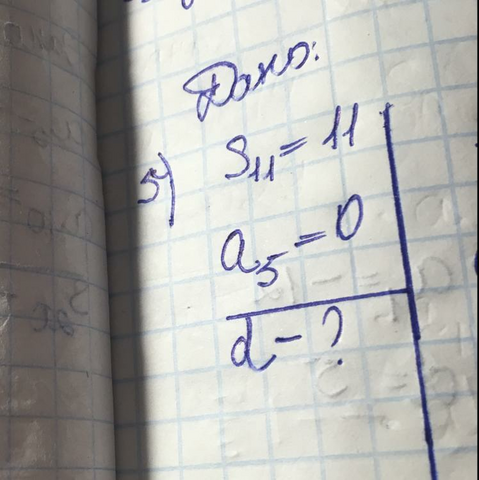 Дано:
5) S₁₁ = 11
a₅ = 0
d - ?